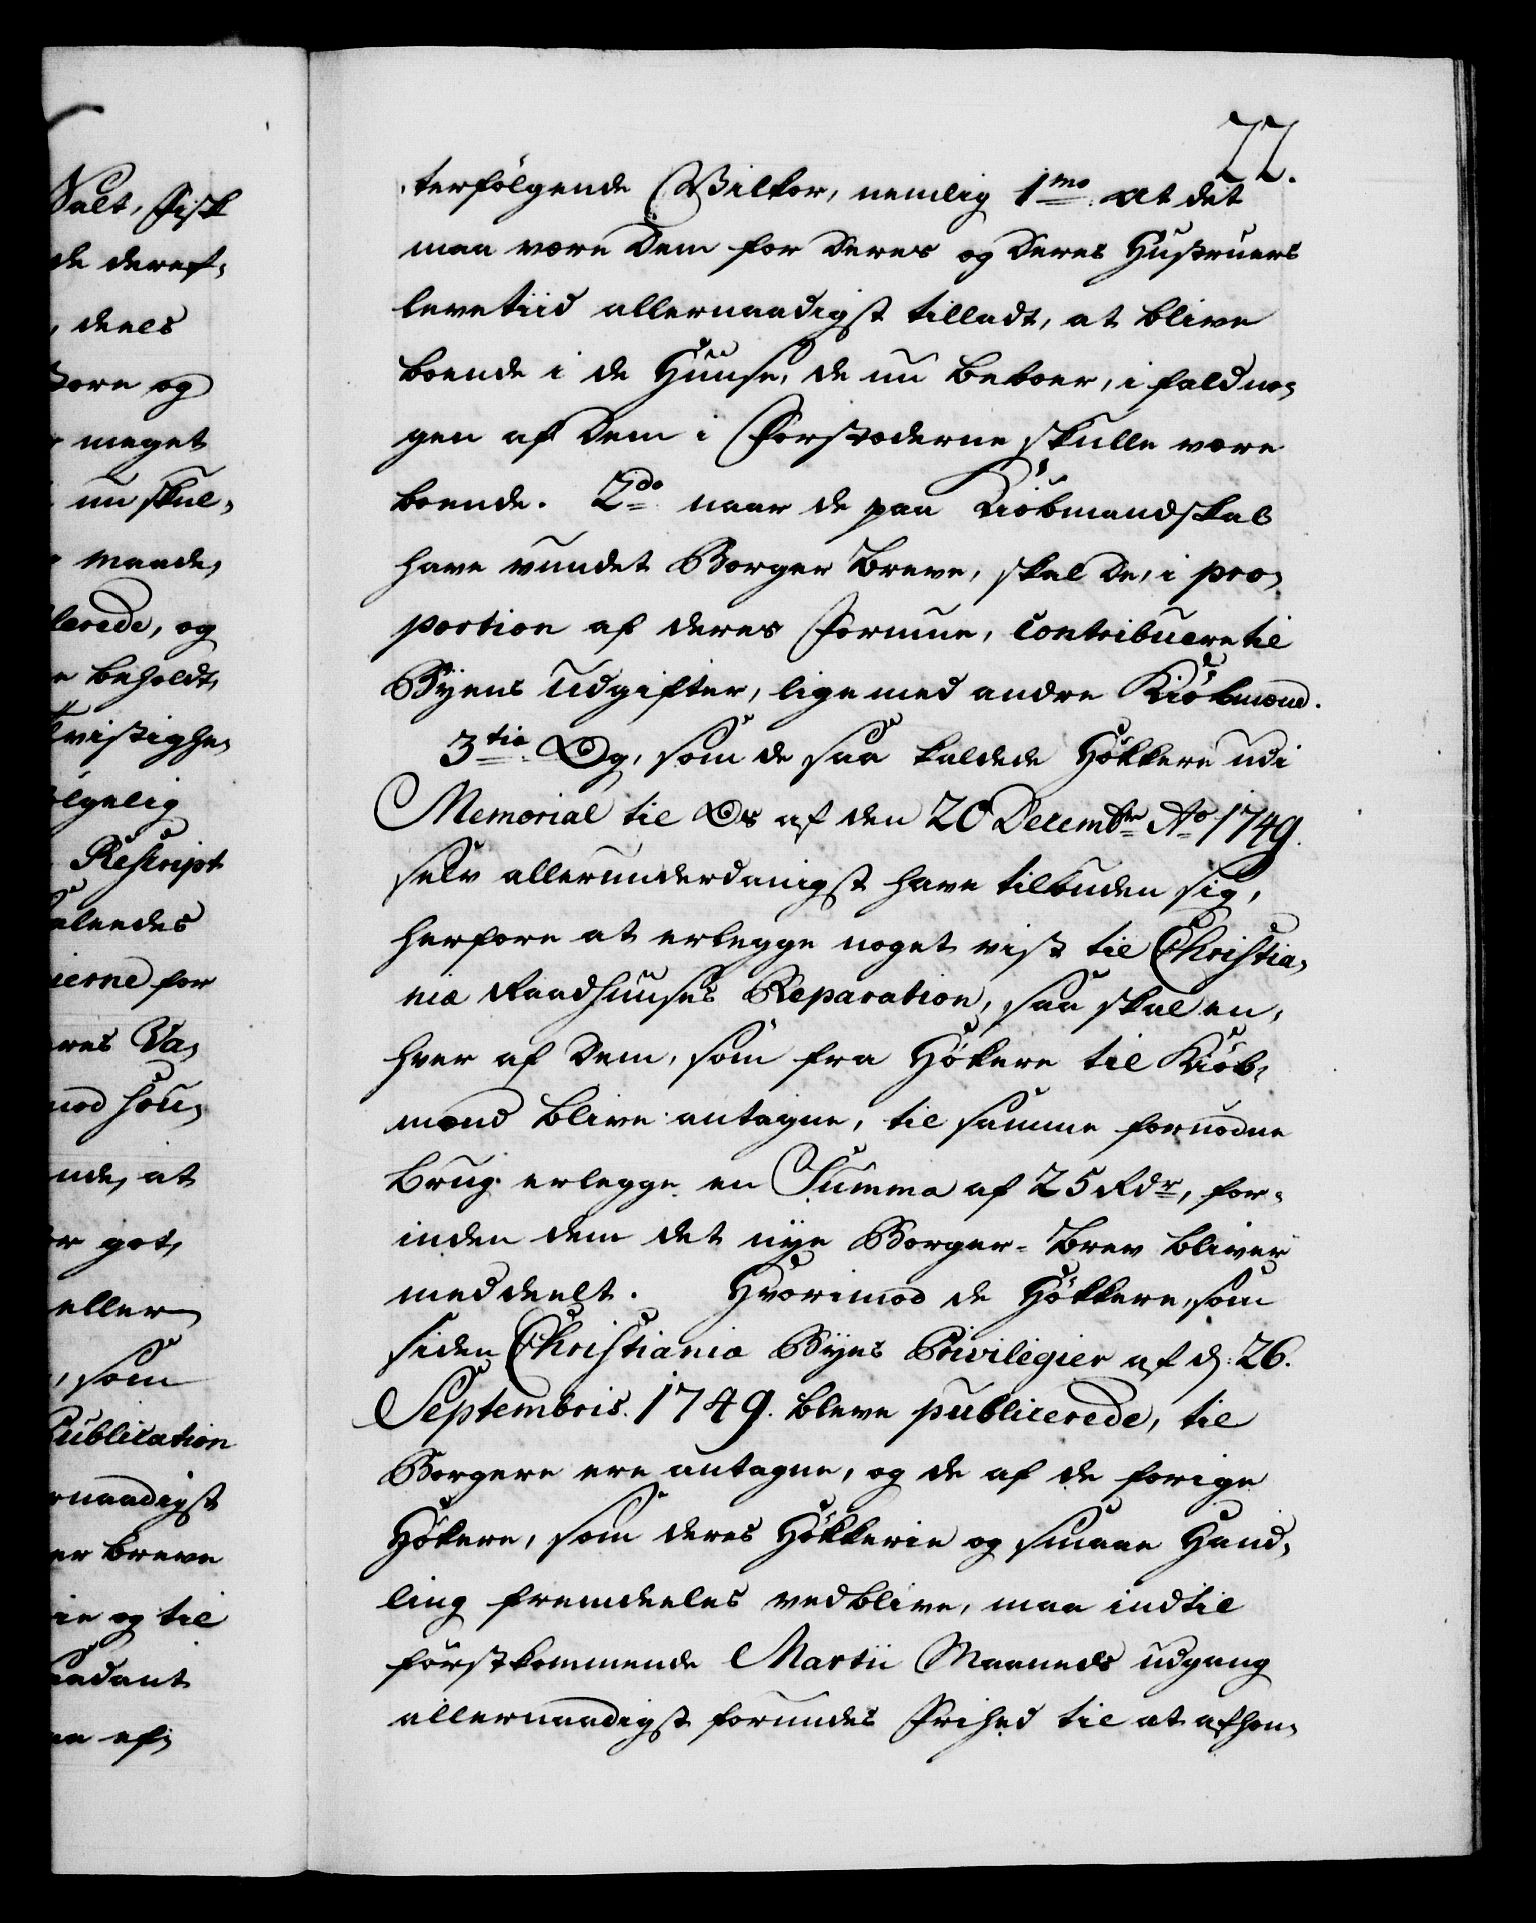 Salt, Fisk
de deref-
, deels
og
meget
nu skul-
maade,
og
beholdt
Rescript
ierne for
Va-
, at
got,
eller
, som
Publication
Breve
ie og til
22.
terfölgende Wilkor, nemlig 1mo. At det
maa være Dem for Deres og Deres Hustruers
levetiid allernaadigst tilladt, at blive
boende i de Huuse, de nu beboer, i fald no-
gen af Dem i Forstæderne skulle være
boende. 2do naar de paa Kiöbmandskab
have vundet Borger Breve, skal De, i pro-
portion af deres Formue, Contribuere til
Byens Udgifter, lige med andre Kiöbmænd.
3tio. Og, som de saa kaldede Hökkere udi
Memorial til Os af den 20 Decembr. Ao. 1749.
selv allerunderdanigst have tilbuden sig,
herfore at erlegge noget vist til Christia-
niæ Raadhuuses Reparation, saa skal en-
hver af Dem, som fra Hökere til Kiöb-
mænd blive antagne, til samme fornödne
Brug erlegge en Summa af 25 Rdr, for-
inden dem det nye Borger-Brev bliver
meddeelt. Hvorimod de Hökkere, som
siden Christianiæ Byes Privilegier af d: 26.
Septembris. 1749. bleve publicerede, til
Borgere ere antagne, og de af de forige
Hökere, som deres Hökkerie og smaae Hand-
ling fremdeeles vedblive, maa indtil
förstkommende Martii Maaneds udgang
allernaadigst forundes Frihed til at afhen-